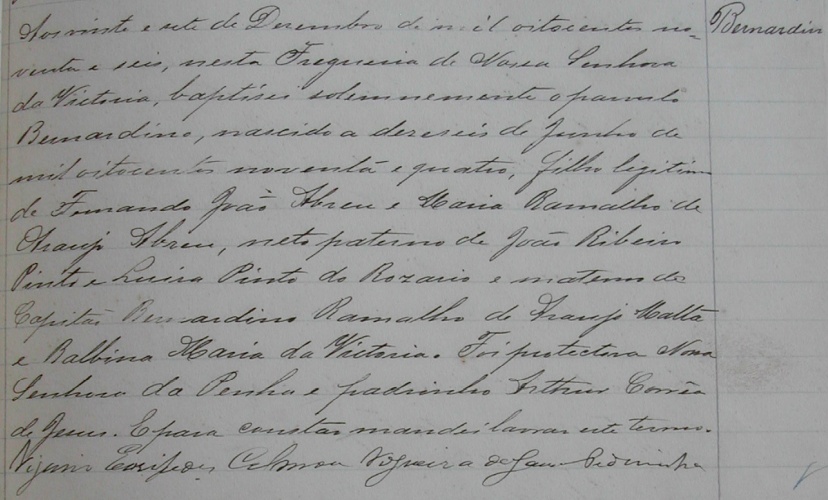 Aos vinte e sete de Dezembro de mil oitocentos no-
Bernardin
venta e seis, nesta Freguesia de Nossa Senhora
da Victoria, baptisei solemnemente o parvulo
Bernardino, nascido a dezeseis de Junho de
mil oitocentos noventa e quatro, filho legitimo
de Fernando João Abreu e Maria Ramalho de
Araujo Abreu, neto paterno de João Ribeiro
Pinto e Luiza Pinto do Rozario e materno do
Capitão Bernardino Ramalho de Araujo Malta
e Balbina Maria da Victoria. Foi protectora Nossa
Senhora da Penha e padrinho Arthur Corrêa
de Jesus. E para constar mandei lavrar este termo.
Vigario